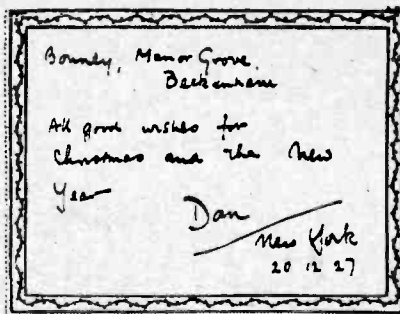 Manor Grove,
Beckenham
All good wishes for
Christmas and the New
Year
Dan
New York
20 12 27